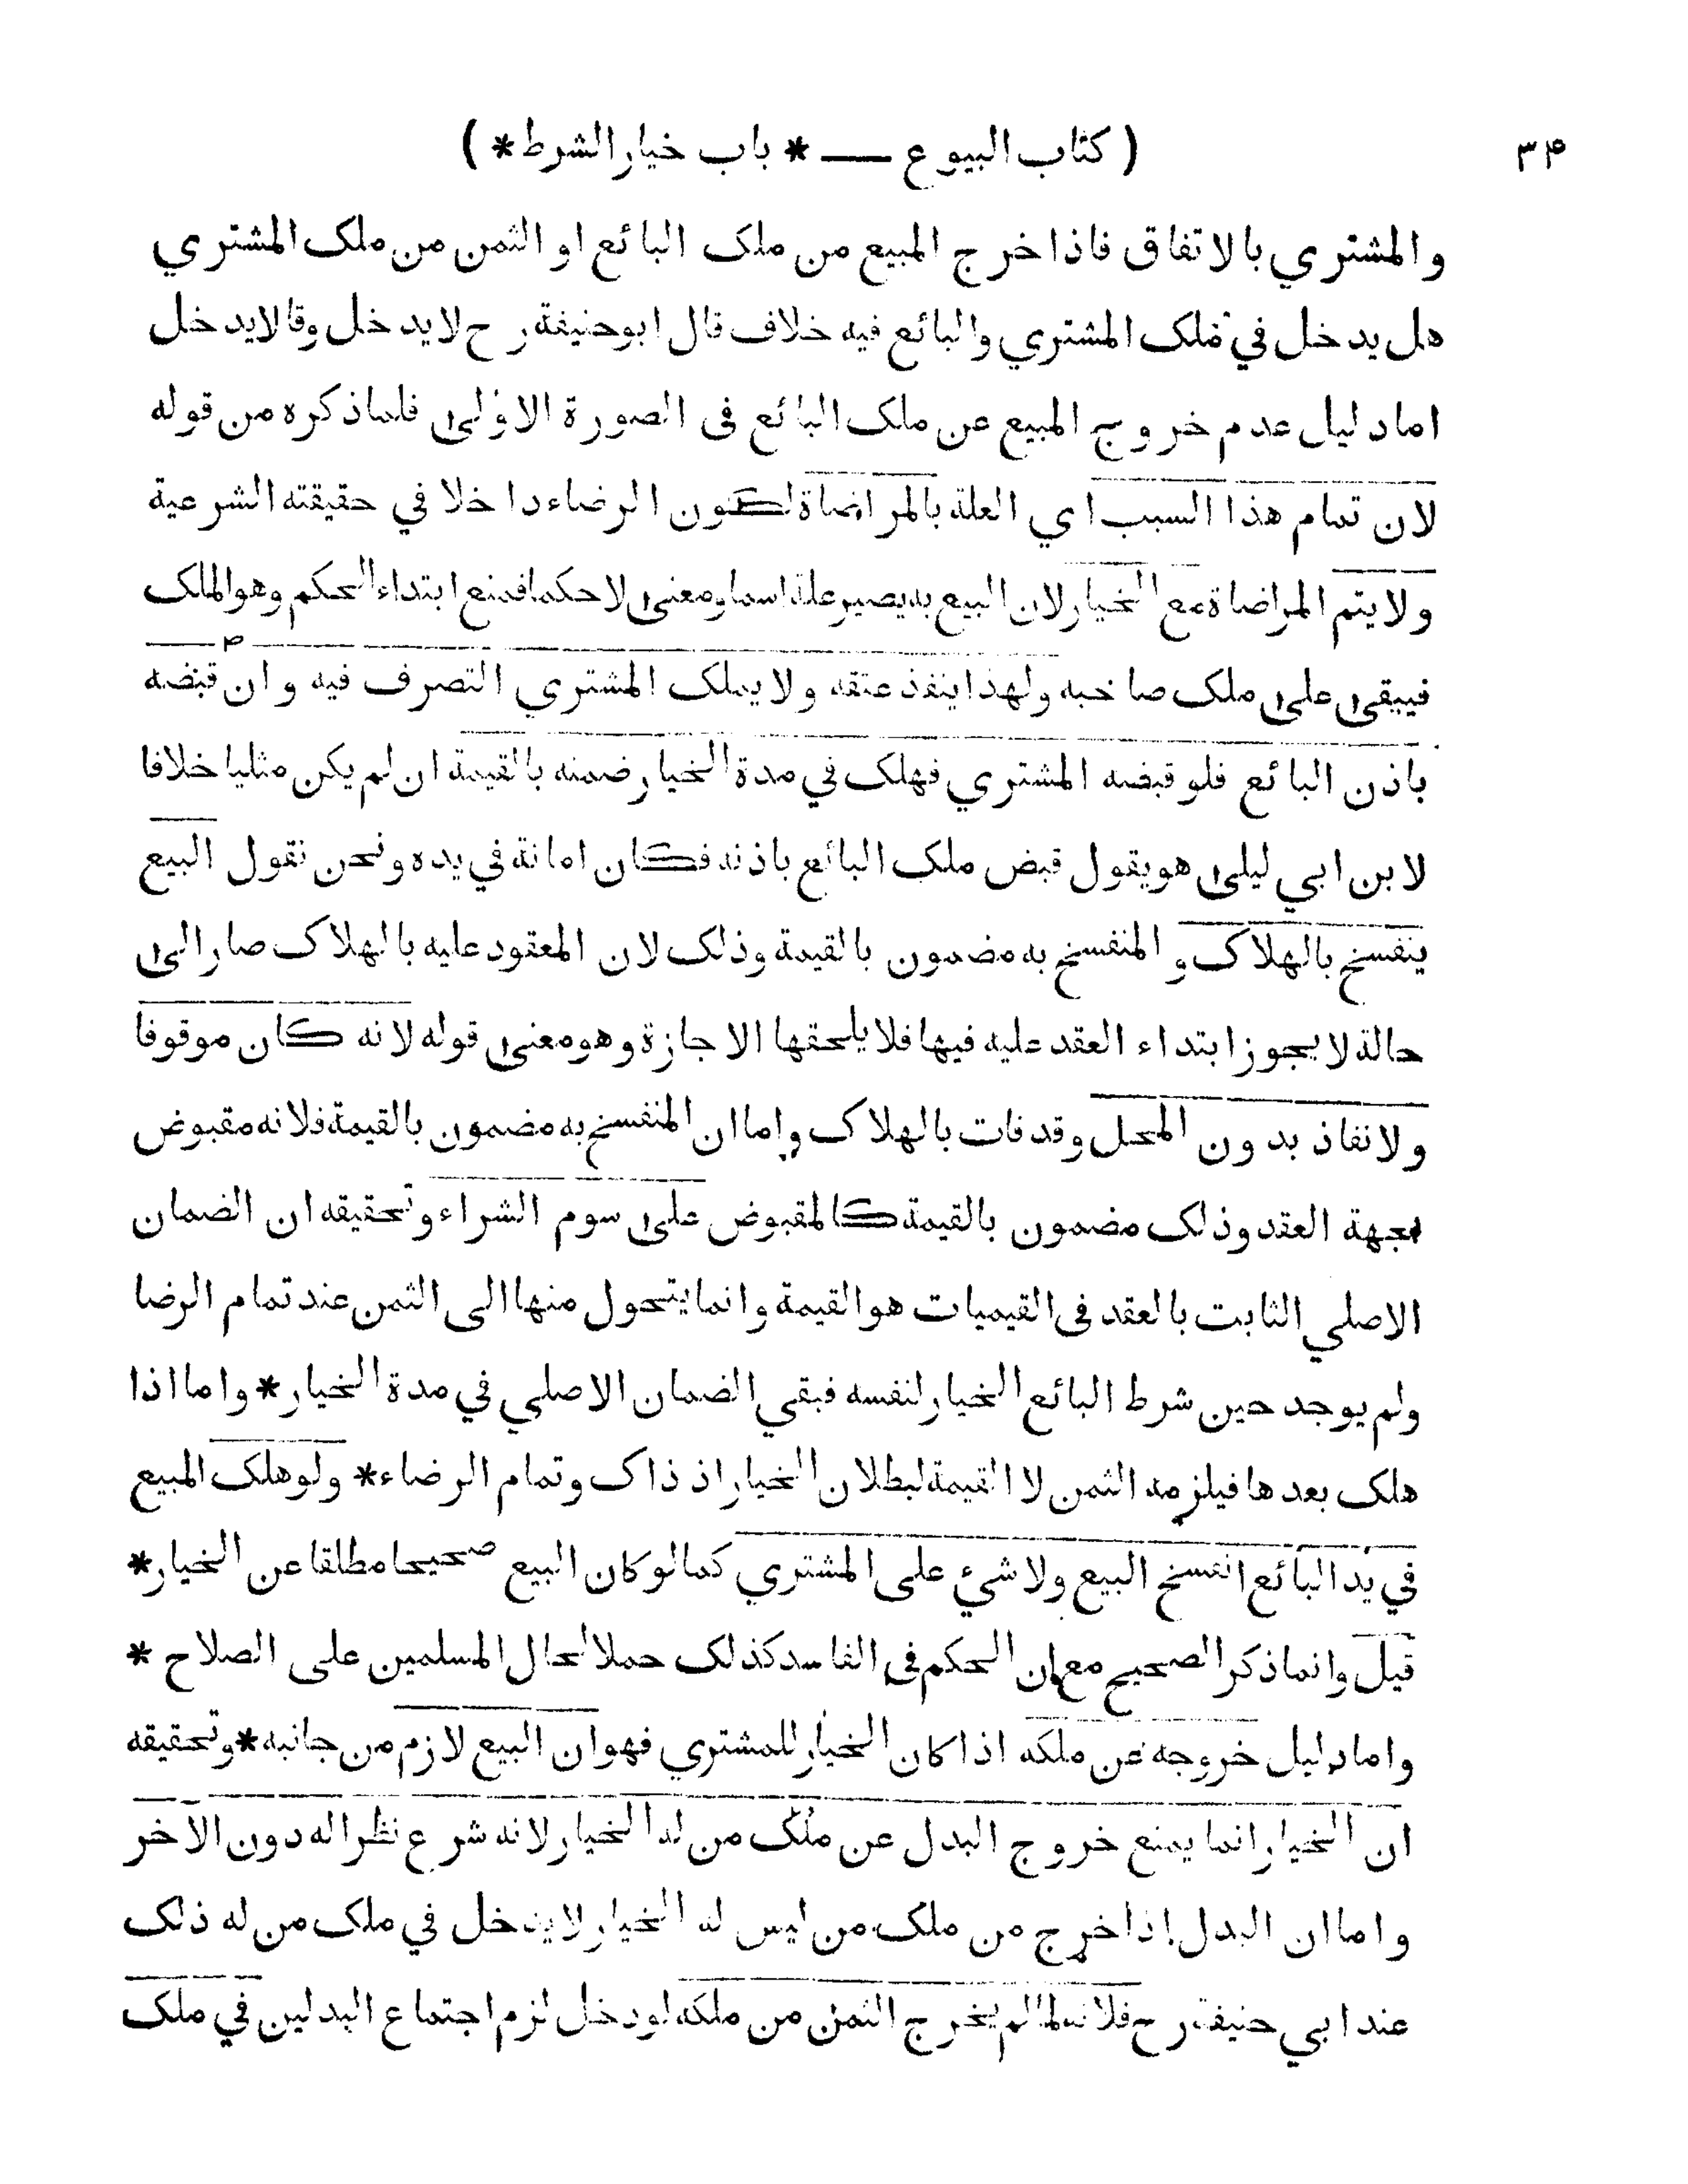 ( كتاب البيوع — * باب خيار الشرط * ) ٣۴
والمشتري بالاتفاق فاذا خرج المبيع من ملك البائع او الثمن من ملك المشتري
هل يدخل في ملك المشتري والبائع فيه خلاف قال ابوحنيفة رح لا يدخل وقالا يدخل
اما دليل عدم خروج المبيع عن ملك البائع فى الصورة الاولى فلما ذكره من قوله
لان تمام هذا السبب اي العلة بالمراضاة لكون الرضاء داخلا في حقيقته الشرعية
ولا يتم المراضاة مع الخيار لان البيع به يصير علة اسما ومعنى لاحكما فمنع ابتداء الحكم وهو الملك
فيبقى على ملك صاحبه ولهذا ينفذ عتقه ولا يملك المشتري التصرف فيه وان قبضه
باذن البائع فلو قبضه المشتري فهلك في مدة الخيار ضمنه بالقيمة ان لم يكن مثليا خلافا
لابن ابي ليلى هو يقول قبض ملك البائع باذنه فكان امانة في يده ونحن نقول البيع
ينفسخ بالهلاك و المنفسخ به مضمون بالقيمة وذلك لان المعقود عليه بالهلاك صار الى
حالة لا يجوز ابتداء العقد عليه فيها فلا يلحقها الاجازة وهو معنى قوله لانه كان موقوفا
ولا نفاذ بدون المحل وقد فات بالهلاك واما ان المنفسخ به مضمون بالقيمة فلانه مقبوض
بجهة العقد وذلك مضمون بالقيمة كالمقبوض على سوم الشراء وتحقيقه ان الضمان
الاصلي الثابت بالعقد فى القيميات هو القيمة وانما يتحول منها الى الثمن عند تمام الرضا
ولم يوجد حين شرط البائع الخيار لنفسه فبقي الضمان الاصلي في مدة الخيار * واما اذا
هلك بعدها فيلزمه الثمن لا القيمة لبطلان الخيار اذ ذاك وتمام الرضاء * ولو هلك المبيع
في يد البائع انفسخ البيع ولا شيء على المشتري كما لو كان البيع صحيحا مطلقا عن الخيار *
قيل وانما ذكر الصحيح مع ان الحكم فى الفاسد كذلك حملا لحال المسلمين على الصلاح *
واما دليل خروجه عن ملكه اذا كان الخيار للمشتري فهو ان البيع لازم من جانبه * وتحقيقه
ان الخيار انما يمنع خروج البدل عن ملك من له الخيار لانه شرع نظرا له دون الآخر
واما ان البدل إذا خرج من ملك من ليس له الخيار لا يدخل في ملك من له ذلك
عند ابي حنيفة رح فلانه لما لم يخرج الثمن من ملكه لو دخل لزم اجتماع البدلين في ملك